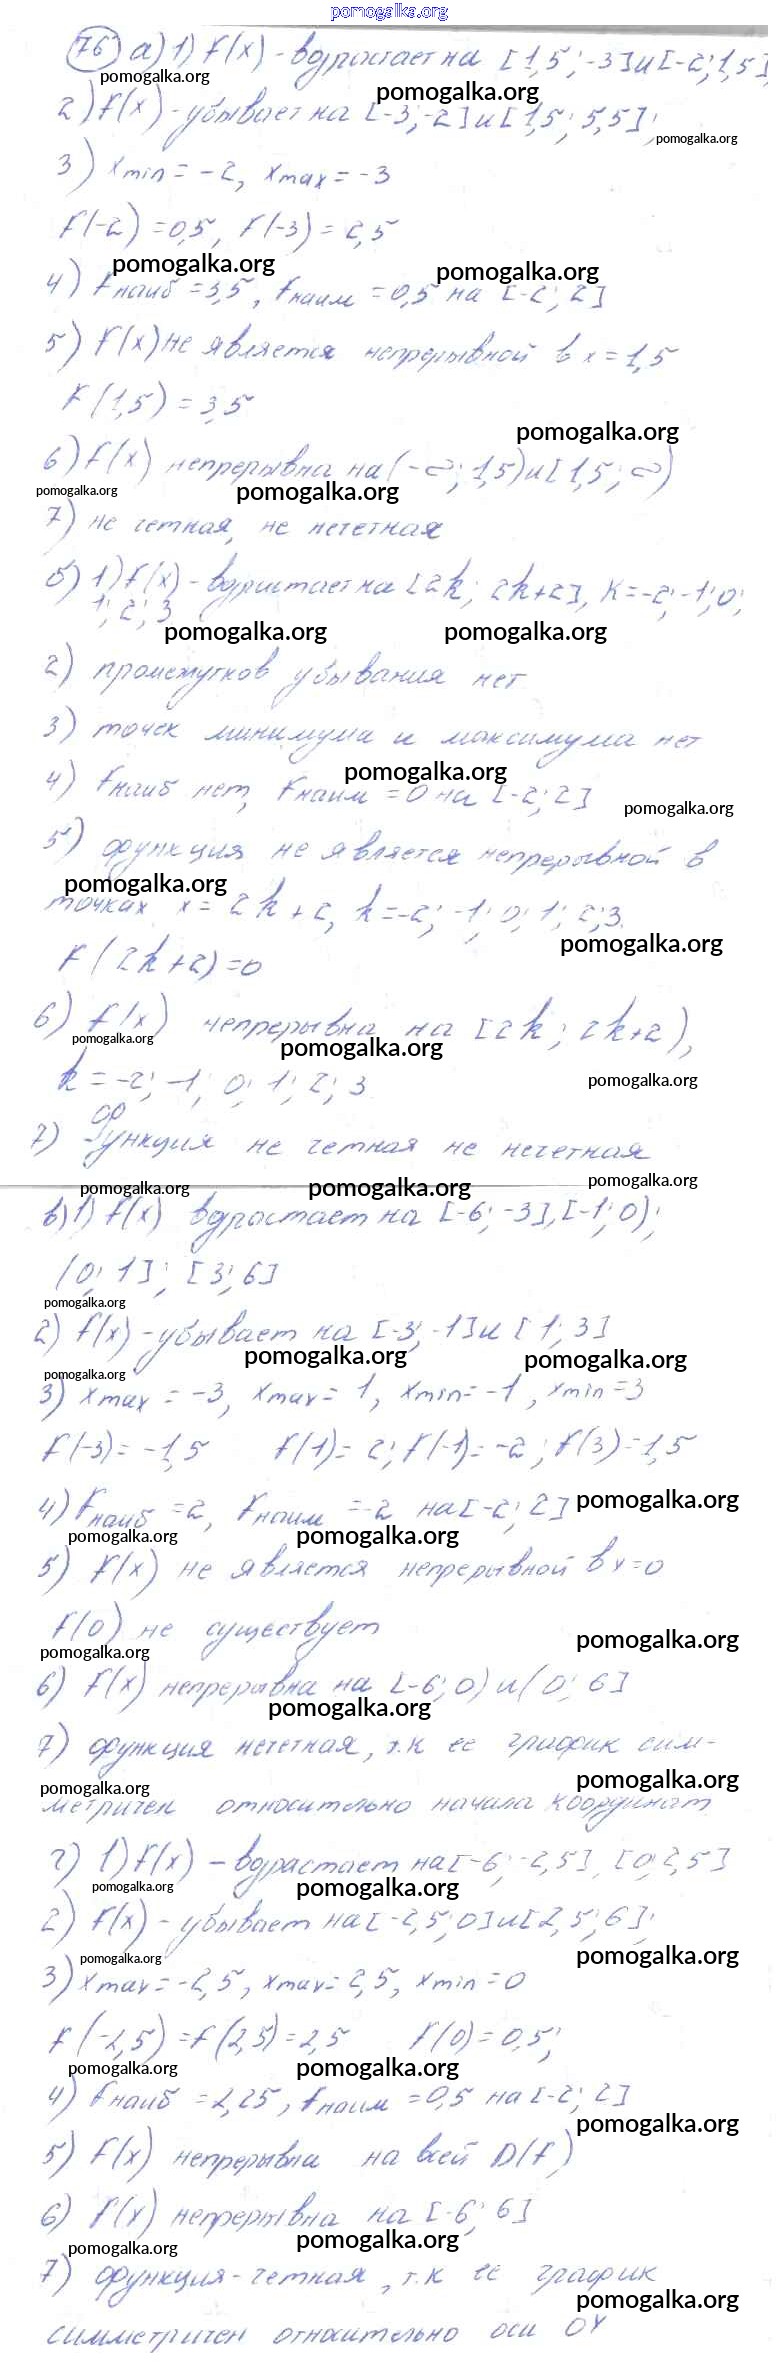 pomogalka.org
76) а) 1) f(x) - возрастает на [1,5; -3] и [-2; 1,5],
pomogalka.org
2) f(x) - убывает на [-3; -2] и [1,5; 5,5];
pomogalka.org
pomogalka.org
3) xmin = -2, xmax = -3
f(-2) = 0,5, f(-3) = 2,5
pomogalka.org pomogalka.org
4) fнаиб = 3,5, fнаим = 0,5 на [-2; 2]
5) f(x) не является непрерывной в x = 1,5
f(1,5) = 3,5
pomogalka.org
6) f(x) непрерывна на (-∞; 1,5) и [1,5; ∞)
pomogalka.org pomogalka.org
7) не четная, не нечетная
б) 1) f(x) - возрастает на [2k; 2k+2], k = -2; -1; 0;
1; 2; 3
pomogalka.org pomogalka.org
2) промежутков убывания нет
3) точек минимума и максимума нет
pomogalka.org
4) fнаиб нет, fнаим = 0 на [-2; 2]
pomogalka.org
5) функция не является непрерывной в
pomogalka.org
точках x = 2k + 2, k = -2; -1; 0; 1; 2; 3.
pomogalka.org
f(2k+2) = 0
6) f(x) непрерывна на [2k; 2k+2),
pomogalka.org pomogalka.org
k = -2; -1; 0; 1; 2; 3
pomogalka.org
7) функция не четная не нечетная
pomogalka.org pomogalka.org pomogalka.org
в) 1) f(x) возрастает на [-6; -3], [-1; 0);
(0; 1]; [3; 6]
pomogalka.org
2) f(x) - убывает на [-3; -1] и [1; 3]
pomogalka.org pomogalka.org
pomogalka.org
3) xmax = -3, xmax = 1, xmin = -1, xmin = 3
f(-3) = -1,5 f(1) = 2; f(-1) = -2; f(3) = 1,5
4) fнаиб = 2, fнаим = -2 на [-2; 2] pomogalka.org
pomogalka.org pomogalka.org
5) f(x) не является непрерывной в x = 0
f(0) не существует
pomogalka.org pomogalka.org
6) f(x) непрерывна на [-6; 0) и (0; 6]
pomogalka.org
7) функция нечетная, т.к ее график сим-
pomogalka.org pomogalka.org
метричен относительно начала координат
г) 1) f(x) - возрастает на [-6; -2,5], [0; 2,5]
pomogalka.org pomogalka.org
2) f(x) - убывает на [-2,5; 0] и [2,5; 6];
pomogalka.org pomogalka.org
3) xmax = -2,5, xmax = 2,5, xmin = 0
f(-2,5) = f(2,5) = 2,5 f(0) = 0,5;
pomogalka.org pomogalka.org
4) fнаиб = 2,25, fнаим = 0,5 на [-2; 2]
pomogalka.org
5) f(x) непрерывна на всей D(f)
6) f(x) непрерывна на [-6; 6]
pomogalka.org pomogalka.org
7) функция - четная, т.к ее график
pomogalka.org
симметричен относительно оси OY